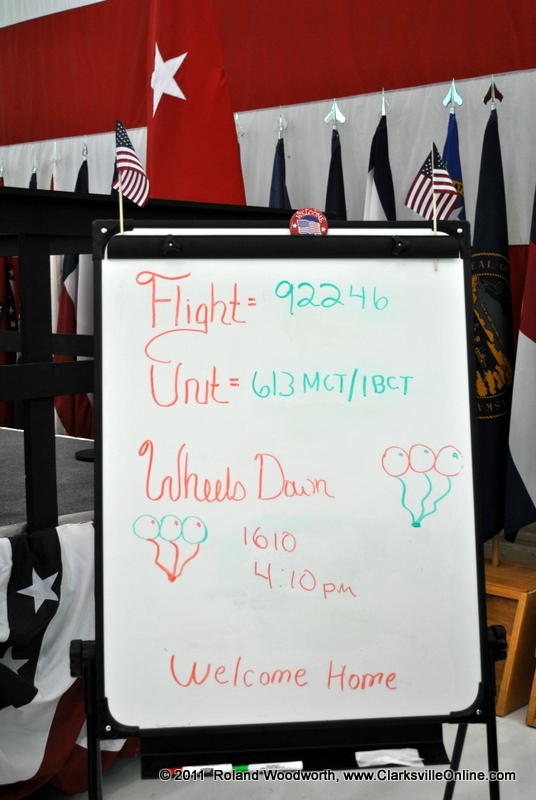 WELCOME
Flight = 92246
Unit = 613 MCT/1BCT
Wheels Down
1610
4:10 pm
Welcome Home
© 2011 Roland Woodworth, www.ClarksvilleOnline.com